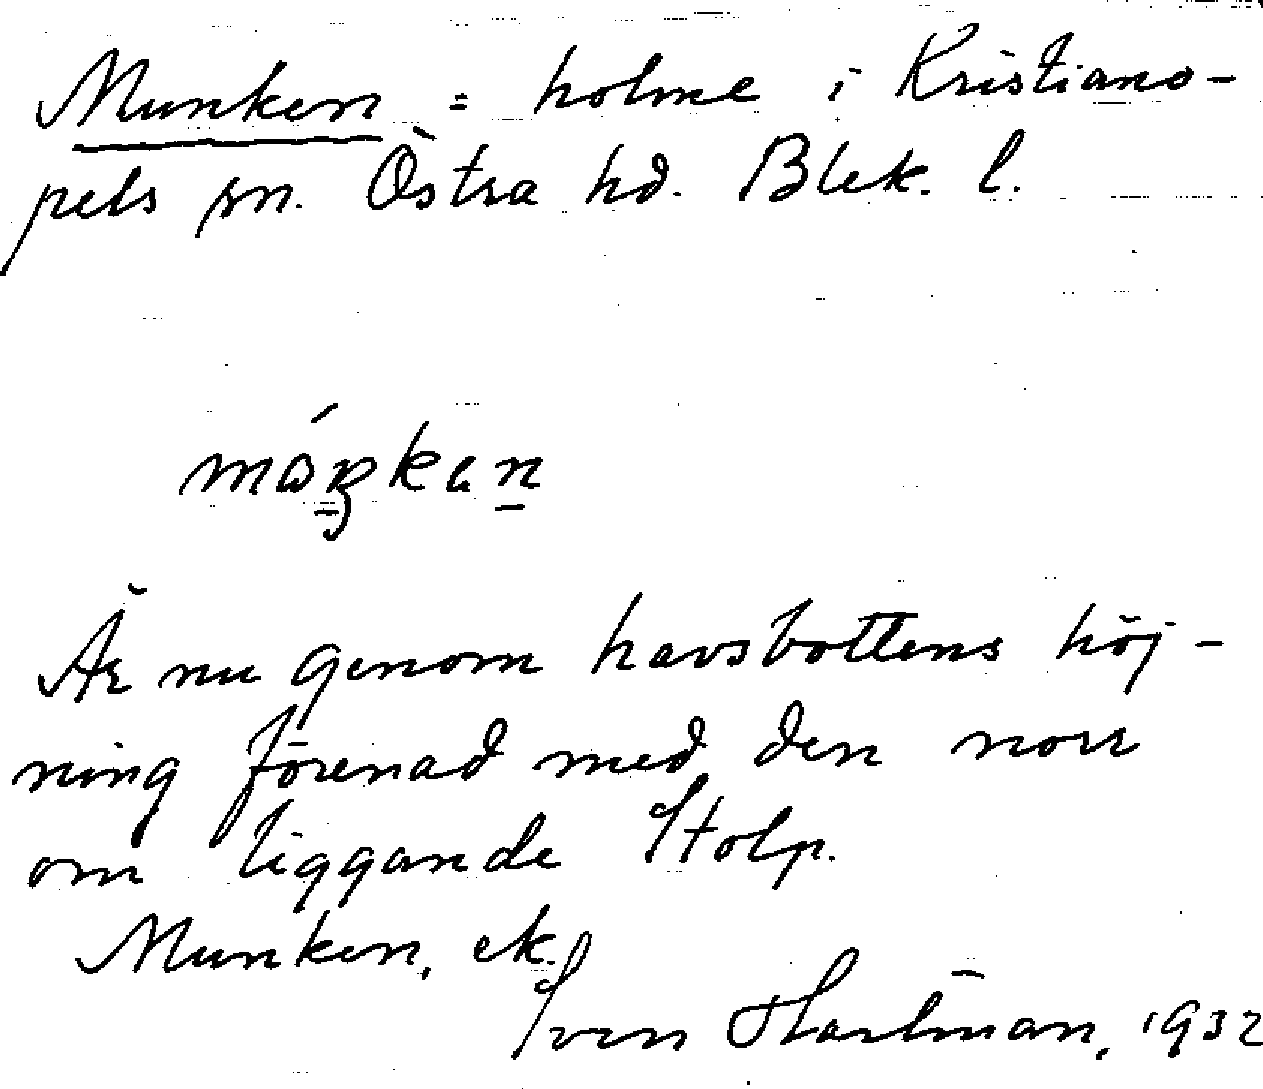 Munken = holme i Kristiano-
pels sn. Östra hd. Blek. l.
Är nu genom havsbottens höj-
ning förenad med den norr
om liggande Stolp.
Munken, ek.
Sven Hartman, 1932